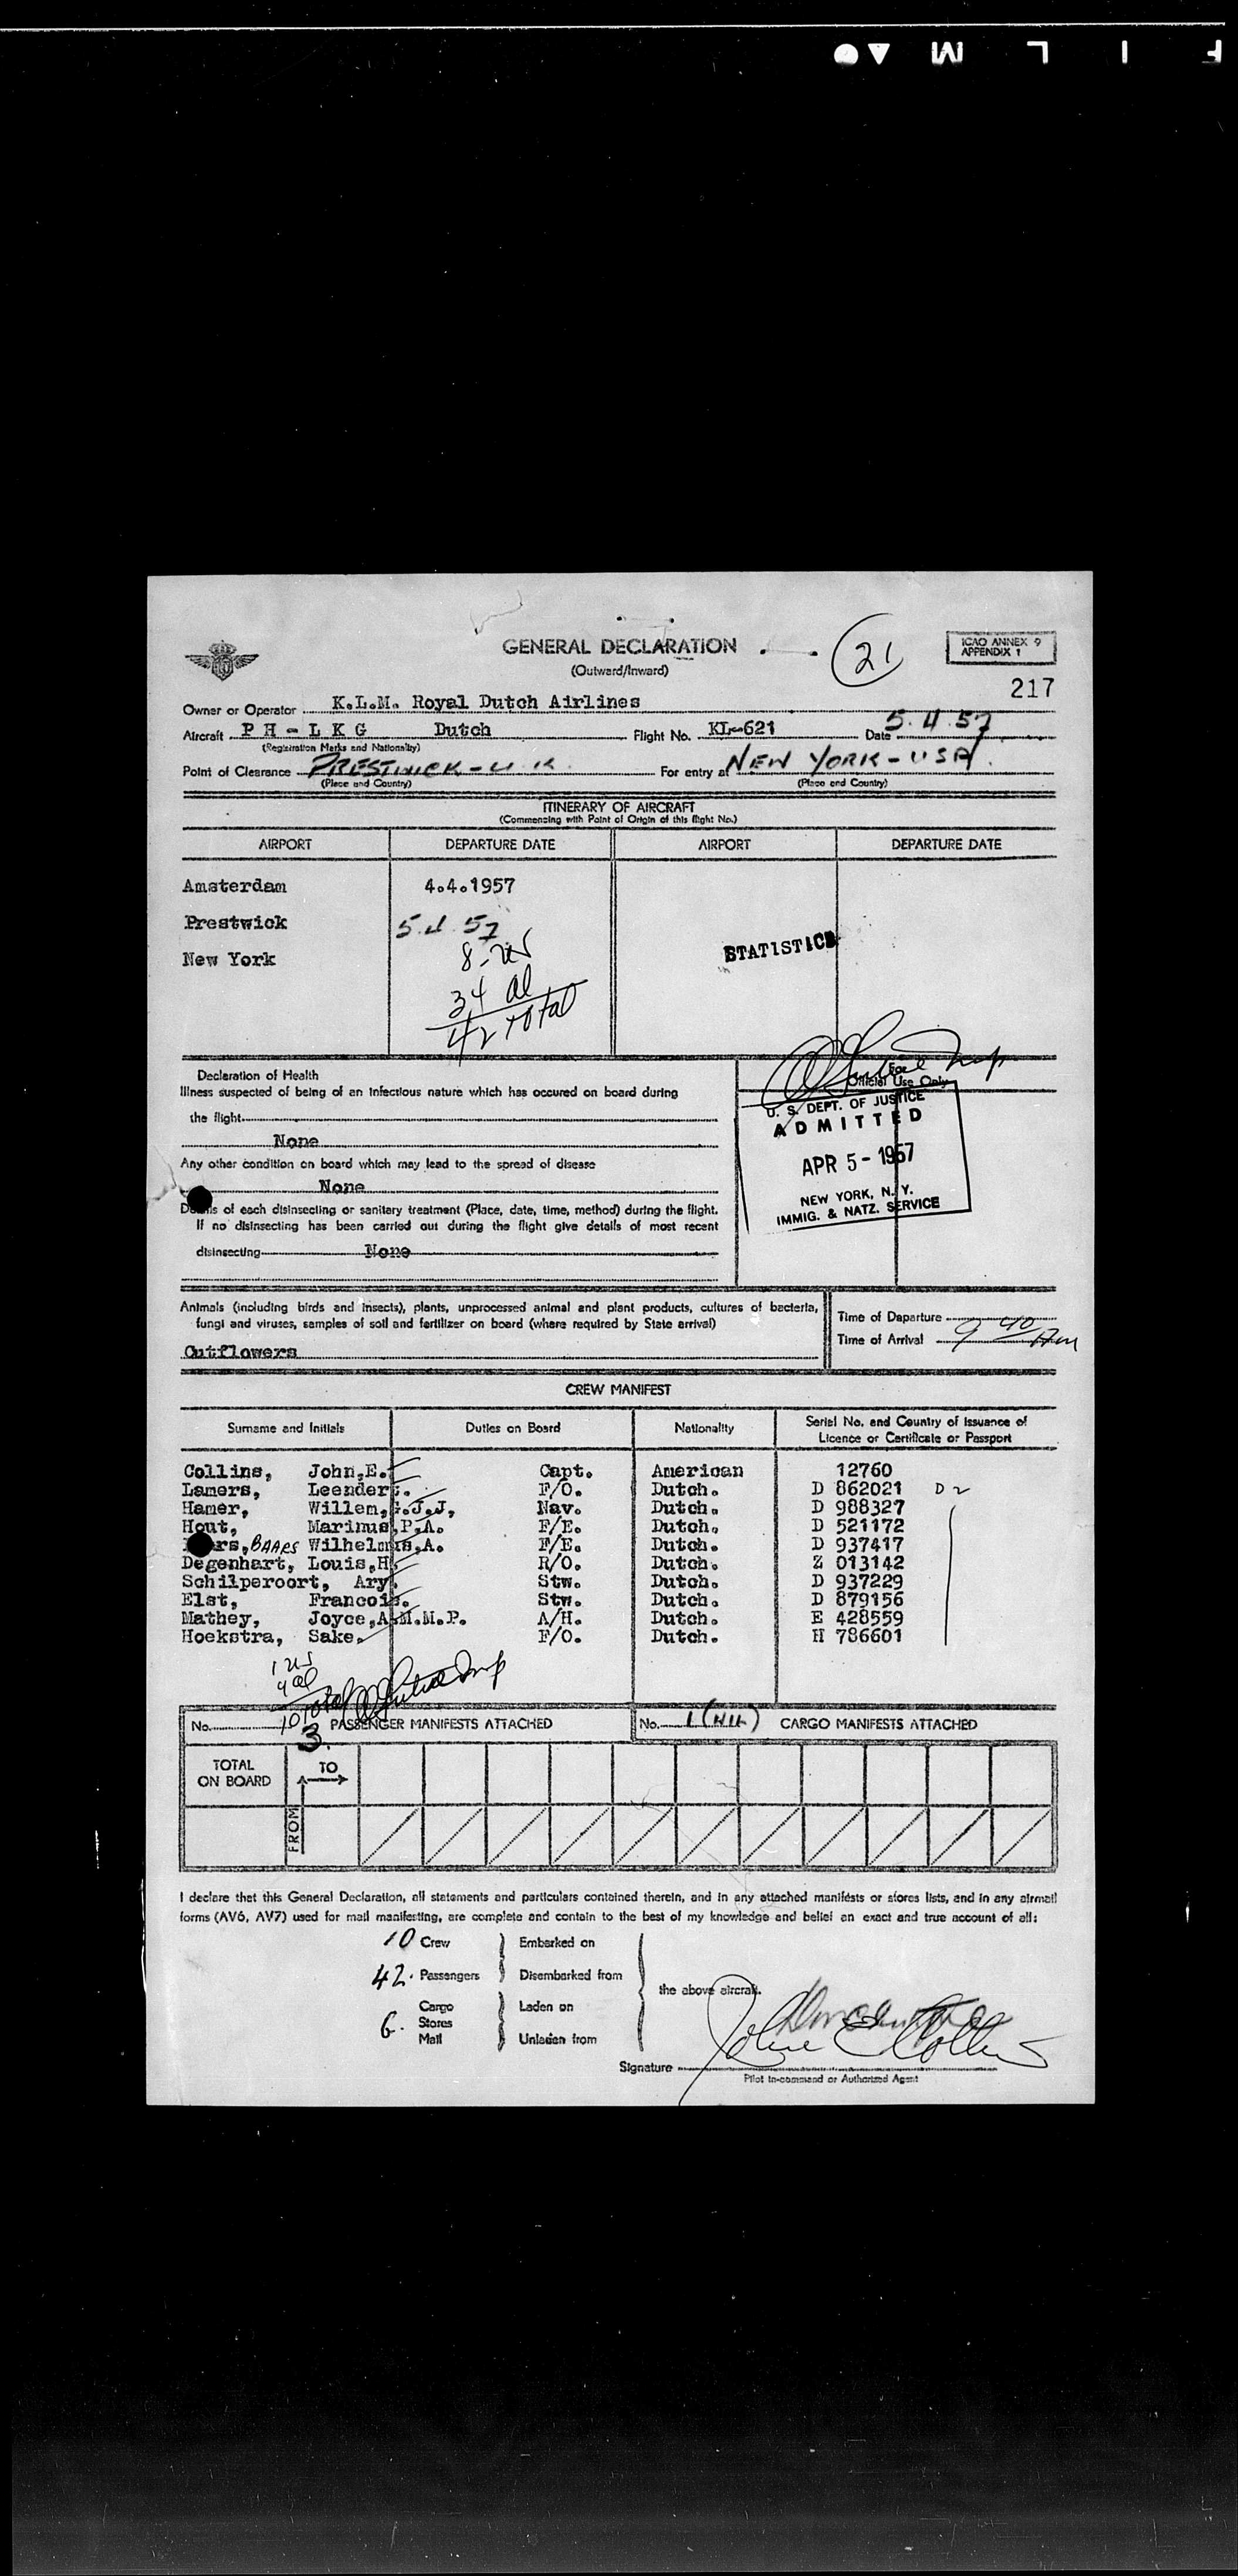 F I L M
GENERAL DECLARATION
(Outward/Inward)
21
ICAO ANNEX 9
APPENDIX 1
217
Owner or Operator K.L.M. Royal Dutch Airlines
Aircraft P H - L K G Dutch Flight No. KL-621 Date 5.4.57
(Registration Marks and Nationality)
Point of Clearance PRESTWICK - U K. For entry at NEW YORK - USA.
(Place and Country) (Place and Country)
ITINERARY OF AIRCRAFT
(Commencing with Point of Origin of this flight No.)
AIRPORT DEPARTURE DATE AIRPORT DEPARTURE DATE
Amsterdam 4.4.1957
Prestwick 5.4.57
New York 8-us
STATISTICS
34 al
42 total
Declaration of Health
For
Official Use Only
Illness suspected of being of an infectious nature which has occured on board during
the flight
None
U. S. DEPT. OF JUSTICE
ADMITTED
APR 5 - 1957
NEW YORK, N. Y.
IMMIG. & NATZ. SERVICE
Any other condition on board which may lead to the spread of disease
None
Details of each disinsecting or sanitary treatment (Place, date, time, method) during the flight.
If no disinsecting has been carried out during the flight give details of most recent
disinsecting None
Animals (including birds and insects), plants, unprocessed animal and plant products, cultures of bacteria,
fungi and viruses, samples of soil and fertilizer on board (where required by State arrival)
Cutflowers
Time of Departure
Time of Arrival 9 40 Am
CREW MANIFEST
Surname and Initials Duties on Board Nationality Serial No. and Country of Issuance of
Licence or Certificate or Passport
Collins, John,E. Capt. American 12760
Lamers, Leendert. F/O. Dutch. D 862021 D2
Hamer, Willem,G.J.J, Nav. Dutch. D 988327
Hout, Marinus,P.A. F/E. Dutch. D 521172
rs, BAARS Wilhelmus,A. F/E. Dutch. D 937417
Degenhart, Louis,H. R/O. Dutch. Z 013142
Schilperoort, Ary. Stw. Dutch. D 937229
Elst, Francois. Stw. Dutch. D 879156
Mathey, Joyce,A.M.M.P. A/H. Dutch. E 428559
Hoekstra, Sake. F/O. Dutch. H 786601
1 us
9 al
10 total
No. 3. PASSENGER MANIFESTS ATTACHED No. 1 (Nil) CARGO MANIFESTS ATTACHED
TOTAL
ON BOARD
TO
FROM
I declare that this General Declaration, all statements and particulars contained therein, and in any attached manifests or stores lists, and in any airmail
forms (AV6, AV7) used for mail manifesting, are complete and contain to the best of my knowledge and belief an exact and true account of all:
10 Crew Embarked on
42. Passengers Disembarked from
the above aircraft.
Cargo Laden on
6. Stores
Mail Unladen from
Signature John E Collins
Pilot in-command or Authorized Agent